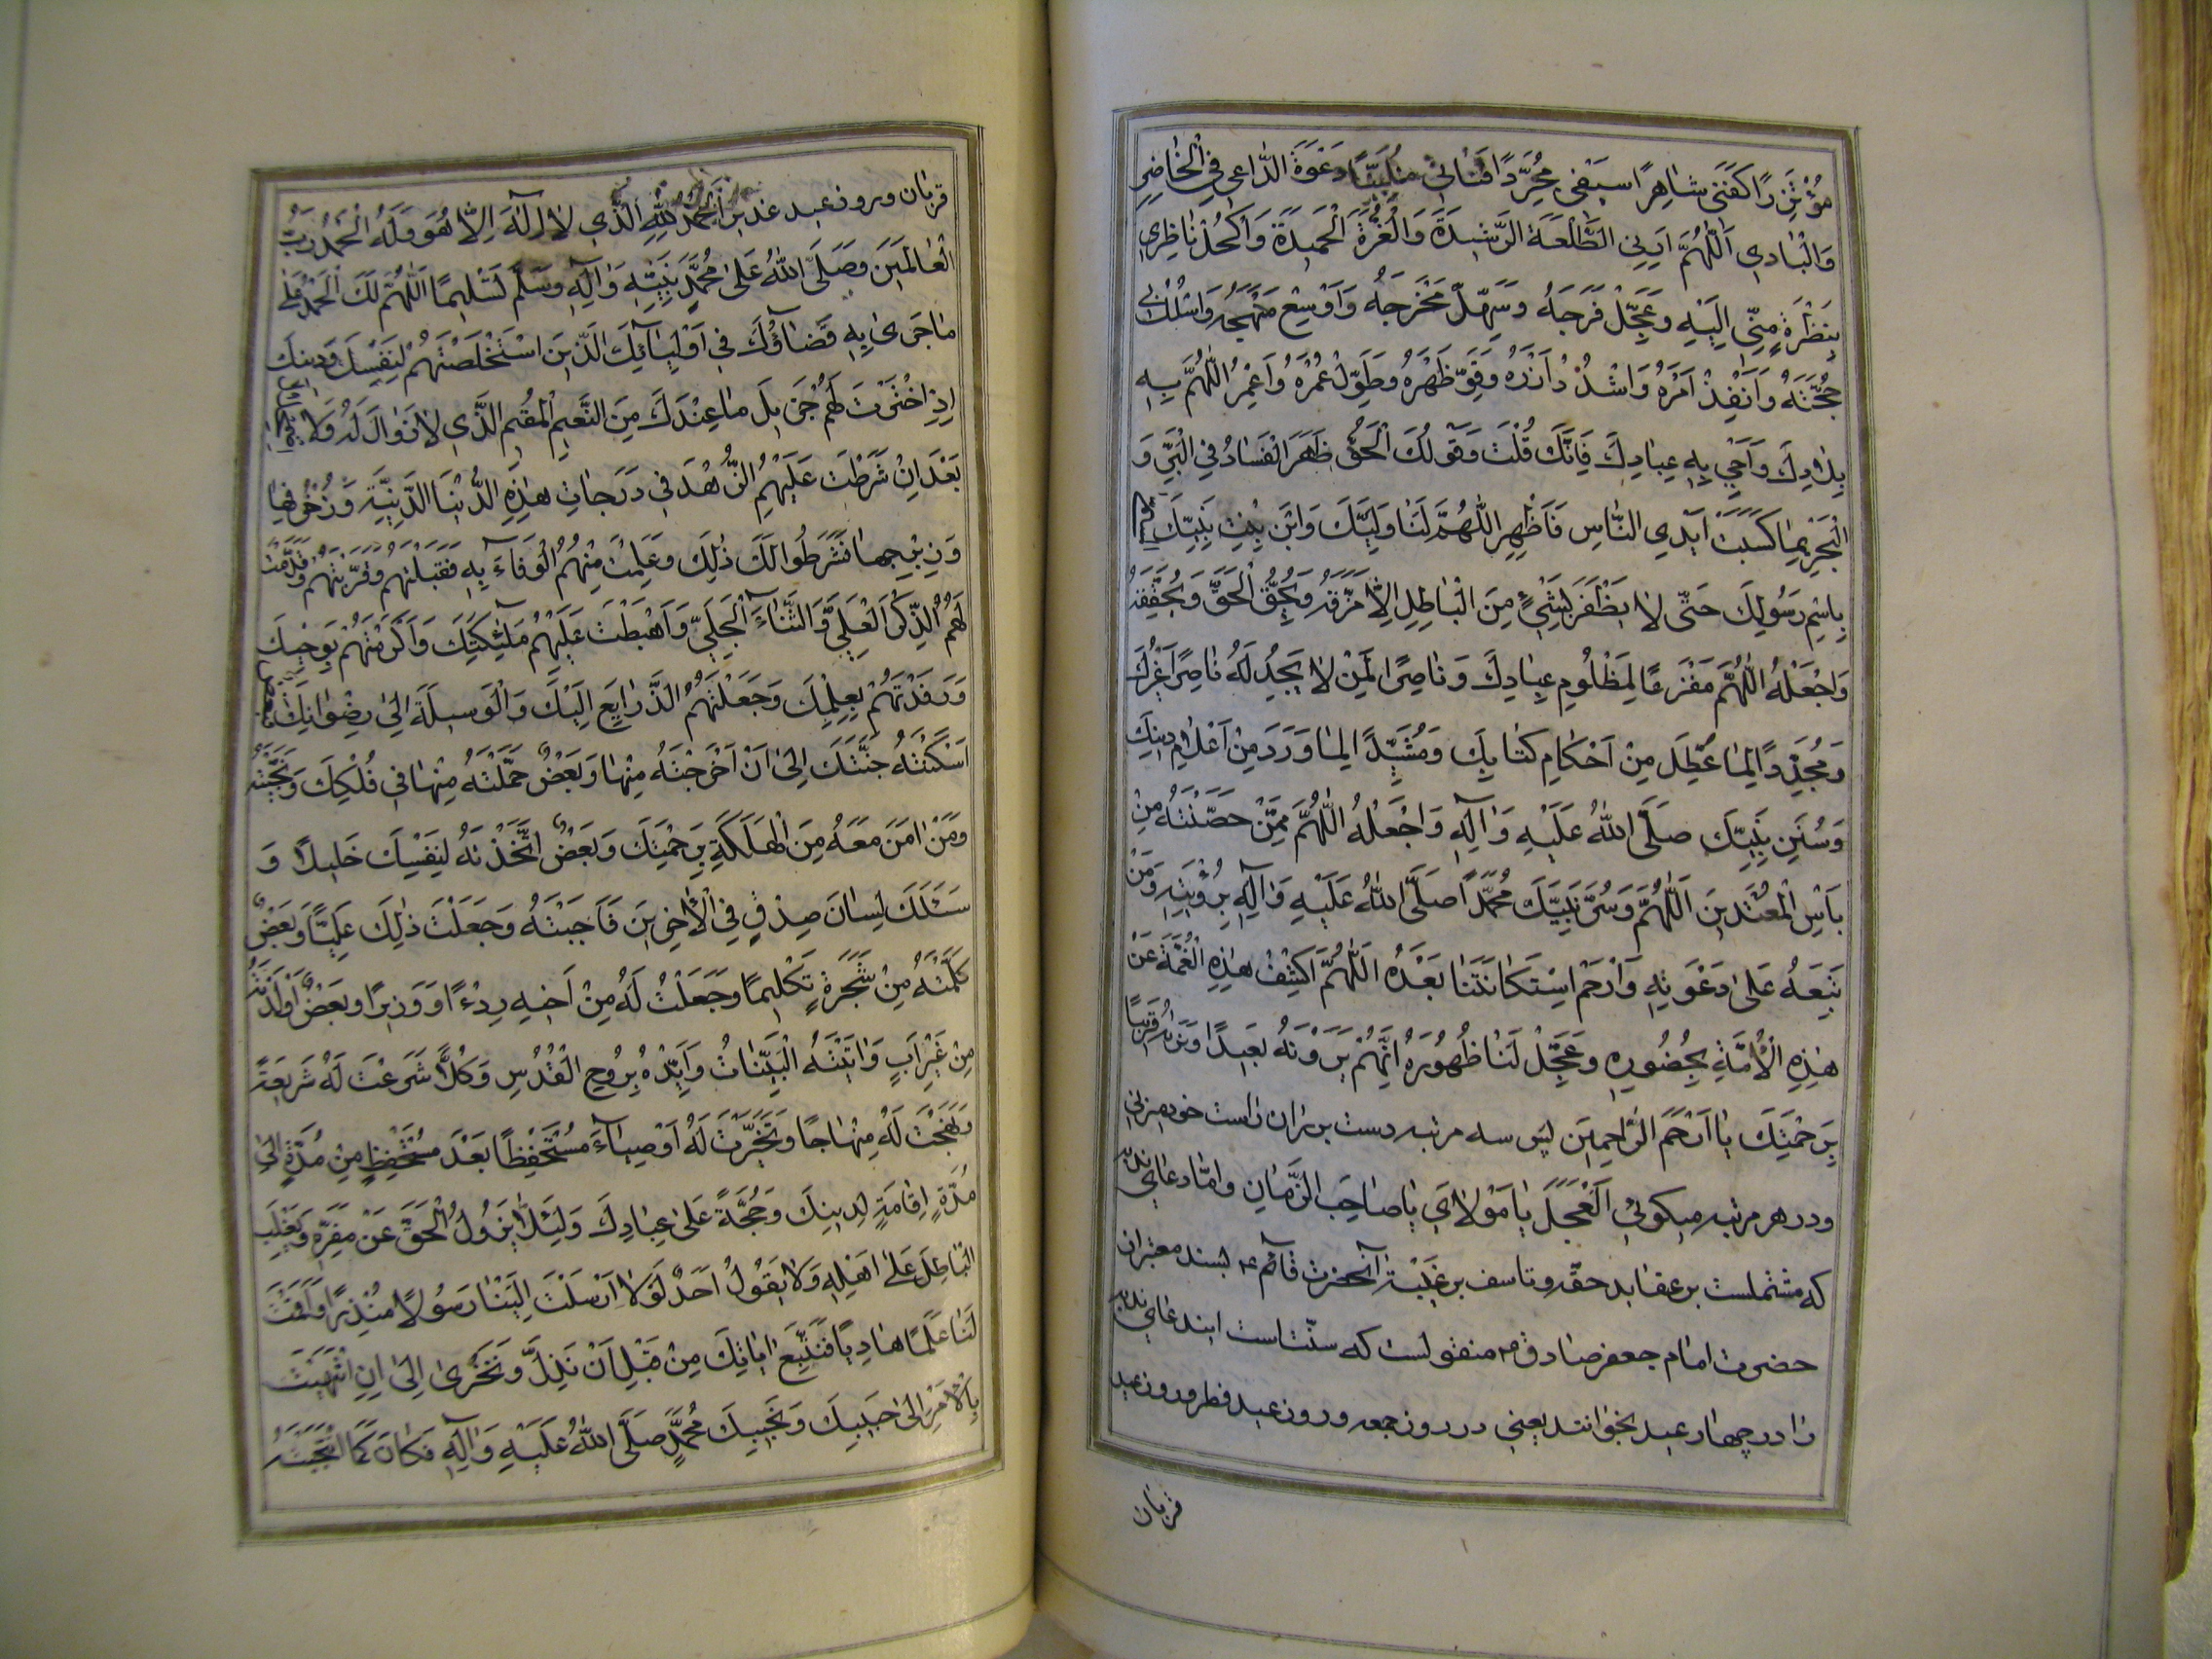 مُؤْتَزِرًا كَفَنِي شَاهِرًا سَيْفِي مُجَرِّدًا قَنَاتِي مُلَبِّيًا دَعْوَةَ الدَّاعِي فِي الْحَاضِرِ
وَالْبَادِي اَللّٰهُمَّ اَرِنِي الطَّلْعَةَ الرَّشِيدَةَ وَالْغُرَّةَ الْحَمِيدَةَ وَاكْحُلْ نَاظِرِي
بِنَظْرَةٍ مِنِّي اِلَيْهِ وَعَجِّلْ فَرَجَهُ وَسَهِّلْ مَخْرَجَهُ وَاَوْسِعْ مَنْهَجَهُ وَاسْلُكْ بِي
مَحَجَّتَهُ وَاَنْفِذْ اَمْرَهُ وَاشْدُدْ اَزْرَهُ وَقَوِّ ظَهْرَهُ وَطَوِّلْ عُمْرَهُ وَاعْمُرِ اللّٰهُمَّ بِهِ
بِلَادَكَ وَاَحْيِ بِهِ عِبَادَكَ فَاِنَّكَ قُلْتَ وَقَوْلُكَ الْحَقُّ ظَهَرَ الْفَسَادُ فِي الْبَرِّ وَ
الْبَحْرِ بِمَا كَسَبَتْ اَيْدِي النَّاسِ فَاَظْهِرِ اللّٰهُمَّ لَنَا وَلِيَّكَ وَابْنَ بِنْتِ نَبِيِّكَ
بِاسْمِ رَسُولِكَ حَتّٰى لَا يَظْفَرَ بِشَيْءٍ مِنَ الْبَاطِلِ اِلَّا مَزَّقَهُ وَيُحِقَّ الْحَقَّ وَيُحَقِّقَهُ
وَاجْعَلْهُ اللّٰهُمَّ مَفْزَعًا لِمَظْلُومِ عِبَادِكَ وَنَاصِرًا لِمَنْ لَا يَجِدُ لَهُ نَاصِرًا غَيْرَكَ
وَمُجَدِّدًا لِمَا عُطِّلَ مِنْ اَحْكَامِ كِتَابِكَ وَمُشَيِّدًا لِمَا وَرَدَ مِنْ اَعْلَامِ دِينِكَ
وَسُنَنِ نَبِيِّكَ صَلَّى اللّٰهُ عَلَيْهِ وَآلِهِ وَاجْعَلْهُ اللّٰهُمَّ مِمَّنْ حَصَّنْتَهُ مِنْ
بَأْسِ الْمُعْتَدِينَ اَللّٰهُمَّ وَسُرَّ نَبِيَّكَ مُحَمَّدًا صَلَّى اللّٰهُ عَلَيْهِ وَآلِهِ بِرُؤْيَتِهِ وَمَنْ
تَبِعَهُ عَلٰى دَعْوَتِهِ وَارْحَمْ اسْتِكَانَتَنَا بَعْدَهُ اَللّٰهُمَّ اكْشِفْ هٰذِهِ الْغُمَّةَ عَنْ
هٰذِهِ الْاُمَّةِ بِحُضُورِهِ وَعَجِّلْ لَنَا ظُهُورَهُ اِنَّهُمْ يَرَوْنَهُ بَعِيدًا وَنَرَاهُ قَرِيبًا
بِرَحْمَتِكَ يَا اَرْحَمَ الرَّاحِمِينَ پس سه مرتبه دست بر ران راست خود میزنی
ودر هر مرتبه میکوئی اَلْعَجَلَ يَا مَوْلَايَ يَا صَاحِبَ الزَّمَانِ وامّا دعای ندبه
که مشتملست بر عقاید حقّه وتاسف بر غیبت آنحضرت قائم ع بسند معتبر از
حضرت امام جعفر صادق ع منقولست که سنّت است ایند عای ندبه
را در چهار عید بخوانند یعنی در روز جمعه وروز عید فطر وروز عید
قربان
قربان وروز عید غدیر اَلْحَمْدُ لِلّٰهِ الَّذِي لَا اِلٰهَ اِلَّا هُوَ وَلَهُ الْحَمْدُ رَبِّ
الْعَالَمِينَ وَصَلَّى اللّٰهُ عَلٰى مُحَمَّدٍ نَبِيِّهِ وَآلِهِ وَسَلَّمَ تَسْلِيمًا اَللّٰهُمَّ لَكَ الْحَمْدُ عَلٰى
مَا جَرٰى بِهِ قَضَاؤُكَ فِي اَوْلِيَائِكَ الَّذِينَ اسْتَخْلَصْتَهُمْ لِنَفْسِكَ وَدِينِكَ
اِذِ اخْتَرْتَ لَهُمْ جَزِيلَ مَا عِنْدَكَ مِنَ النَّعِيمِ الْمُقِيمِ الَّذِي لَا زَوَالَ لَهُ وَلَا
بَعْدَ اَنْ شَرَطْتَ عَلَيْهِمُ الزُّهْدَ فِي دَرَجَاتِ هٰذِهِ الدُّنْيَا الدَّنِيَّةِ وَزُخْرُفِهَا
وَزِبْرِجِهَا فَشَرَطُوا لَكَ ذٰلِكَ وَعَلِمْتَ مِنْهُمُ الْوَفَاءَ بِهِ فَقَبِلْتَهُمْ وَقَرَّبْتَهُمْ وَقَدَّمْتَ
لَهُمُ الذِّكْرَ الْعَلِيَّ وَالثَّنَاءَ الْجَلِيَّ وَاَهْبَطْتَ عَلَيْهِمْ مَلٰئِكَتَكَ وَاَكْرَمْتَهُمْ بِوَحْيِكَ
وَرَفَدْتَهُمْ بِعِلْمِكَ وَجَعَلْتَهُمُ الذَّرَايِعَ اِلَيْكَ وَالْوَسِيلَةَ اِلٰى رِضْوَانِكَ
اَسْكَنْتَهُ جَنَّتَكَ اِلٰى اَنْ اَخْرَجْتَهُ مِنْهَا وَبَعْضٌ حَمَلْتَهُ مِنْهَا فِي فُلْكِكَ وَنَجَّيْتَهُ
وَمَنْ اٰمَنَ مَعَهُ مِنَ الْهَلَكَةِ بِرَحْمَتِكَ وَبَعْضٌ اتَّخَذْتَهُ لِنَفْسِكَ خَلِيلًا وَ
سَئَلَكَ لِسَانَ صِدْقٍ فِي الْاٰخِرِينَ فَاَجَبْتَهُ وَجَعَلْتَ ذٰلِكَ عَلِيًّا وَبَعْضٌ
كَلَّمْتَهُ مِنْ شَجَرَةٍ تَكْلِيمًا وَجَعَلْتَ لَهُ مِنْ اَخِيهِ رِدْءًا وَوَزِيرًا وَبَعْضٌ اَوْلَدْتَهُ
مِنْ غَيْرِ اَبٍ وَاٰتَيْتَهُ الْبَيِّنَاتِ وَاَيَّدْتَهُ بِرُوحِ الْقُدُسِ وَكُلًّا شَرَعْتَ لَهُ شَرِيعَةً
وَنَهَجْتَ لَهُ مِنْهَاجًا وَتَخَيَّرْتَ لَهُ اَوْصِيَاءَ مُسْتَحْفِظًا بَعْدَ مُسْتَحْفِظٍ مِنْ مُدَّةٍ اِلٰى
مُدَّةٍ اِقَامَةً لِدِينِكَ وَحُجَّةً عَلٰى عِبَادِكَ وَلِئَلَّا يَزُولَ الْحَقُّ عَنْ مَقَرِّهِ وَيَغْلِبَ
الْبَاطِلُ عَلٰى اَهْلِهِ وَلَا يَقُولَ اَحَدٌ لَوْلَا اَرْسَلْتَ اِلَيْنَا رَسُولًا مُنْذِرًا وَاَقَمْتَ
لَنَا عَلَمًا هَادِيًا فَنَتَّبِعَ اٰيَاتِكَ مِنْ قَبْلِ اَنْ نَذِلَّ وَنَخْزٰى اِلٰى اَنِ انْتَهَيْتَ
بِالْاَمْرِ اِلٰى حَبِيبِكَ وَنَجِيبِكَ مُحَمَّدٍ صَلَّى اللّٰهُ عَلَيْهِ وَآلِهِ فَكَانَ كَمَا انْتَجَبْتَهُ